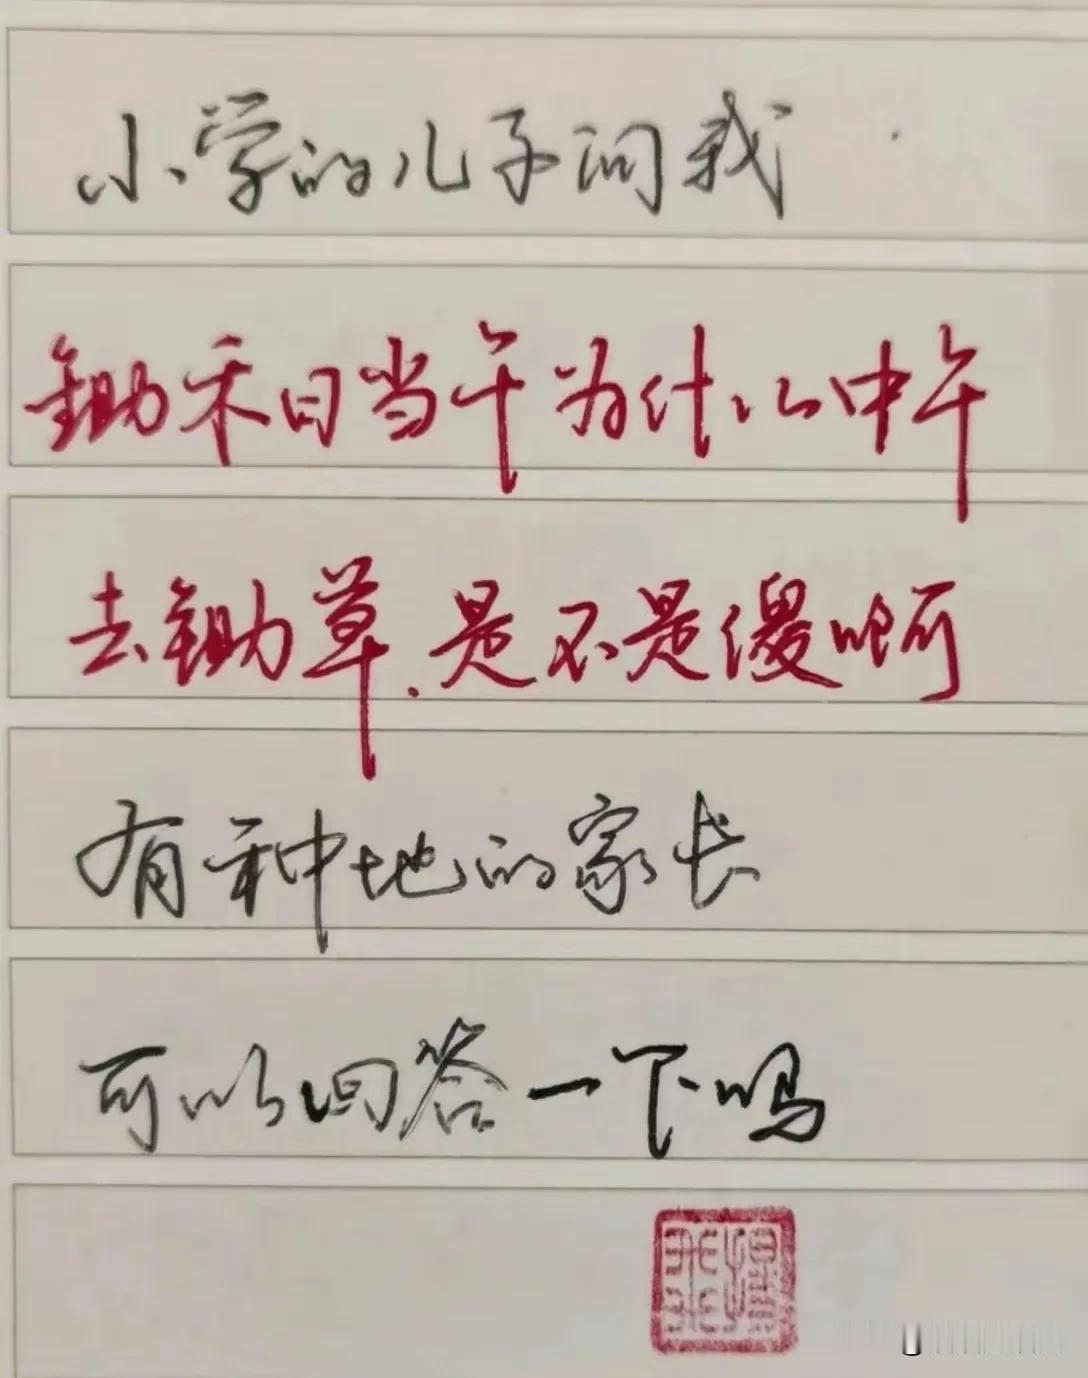 小学的儿子问我
锄禾日当午为什么中午
去锄草.是不是傻啊
有种地的家长
可以回答一下吗